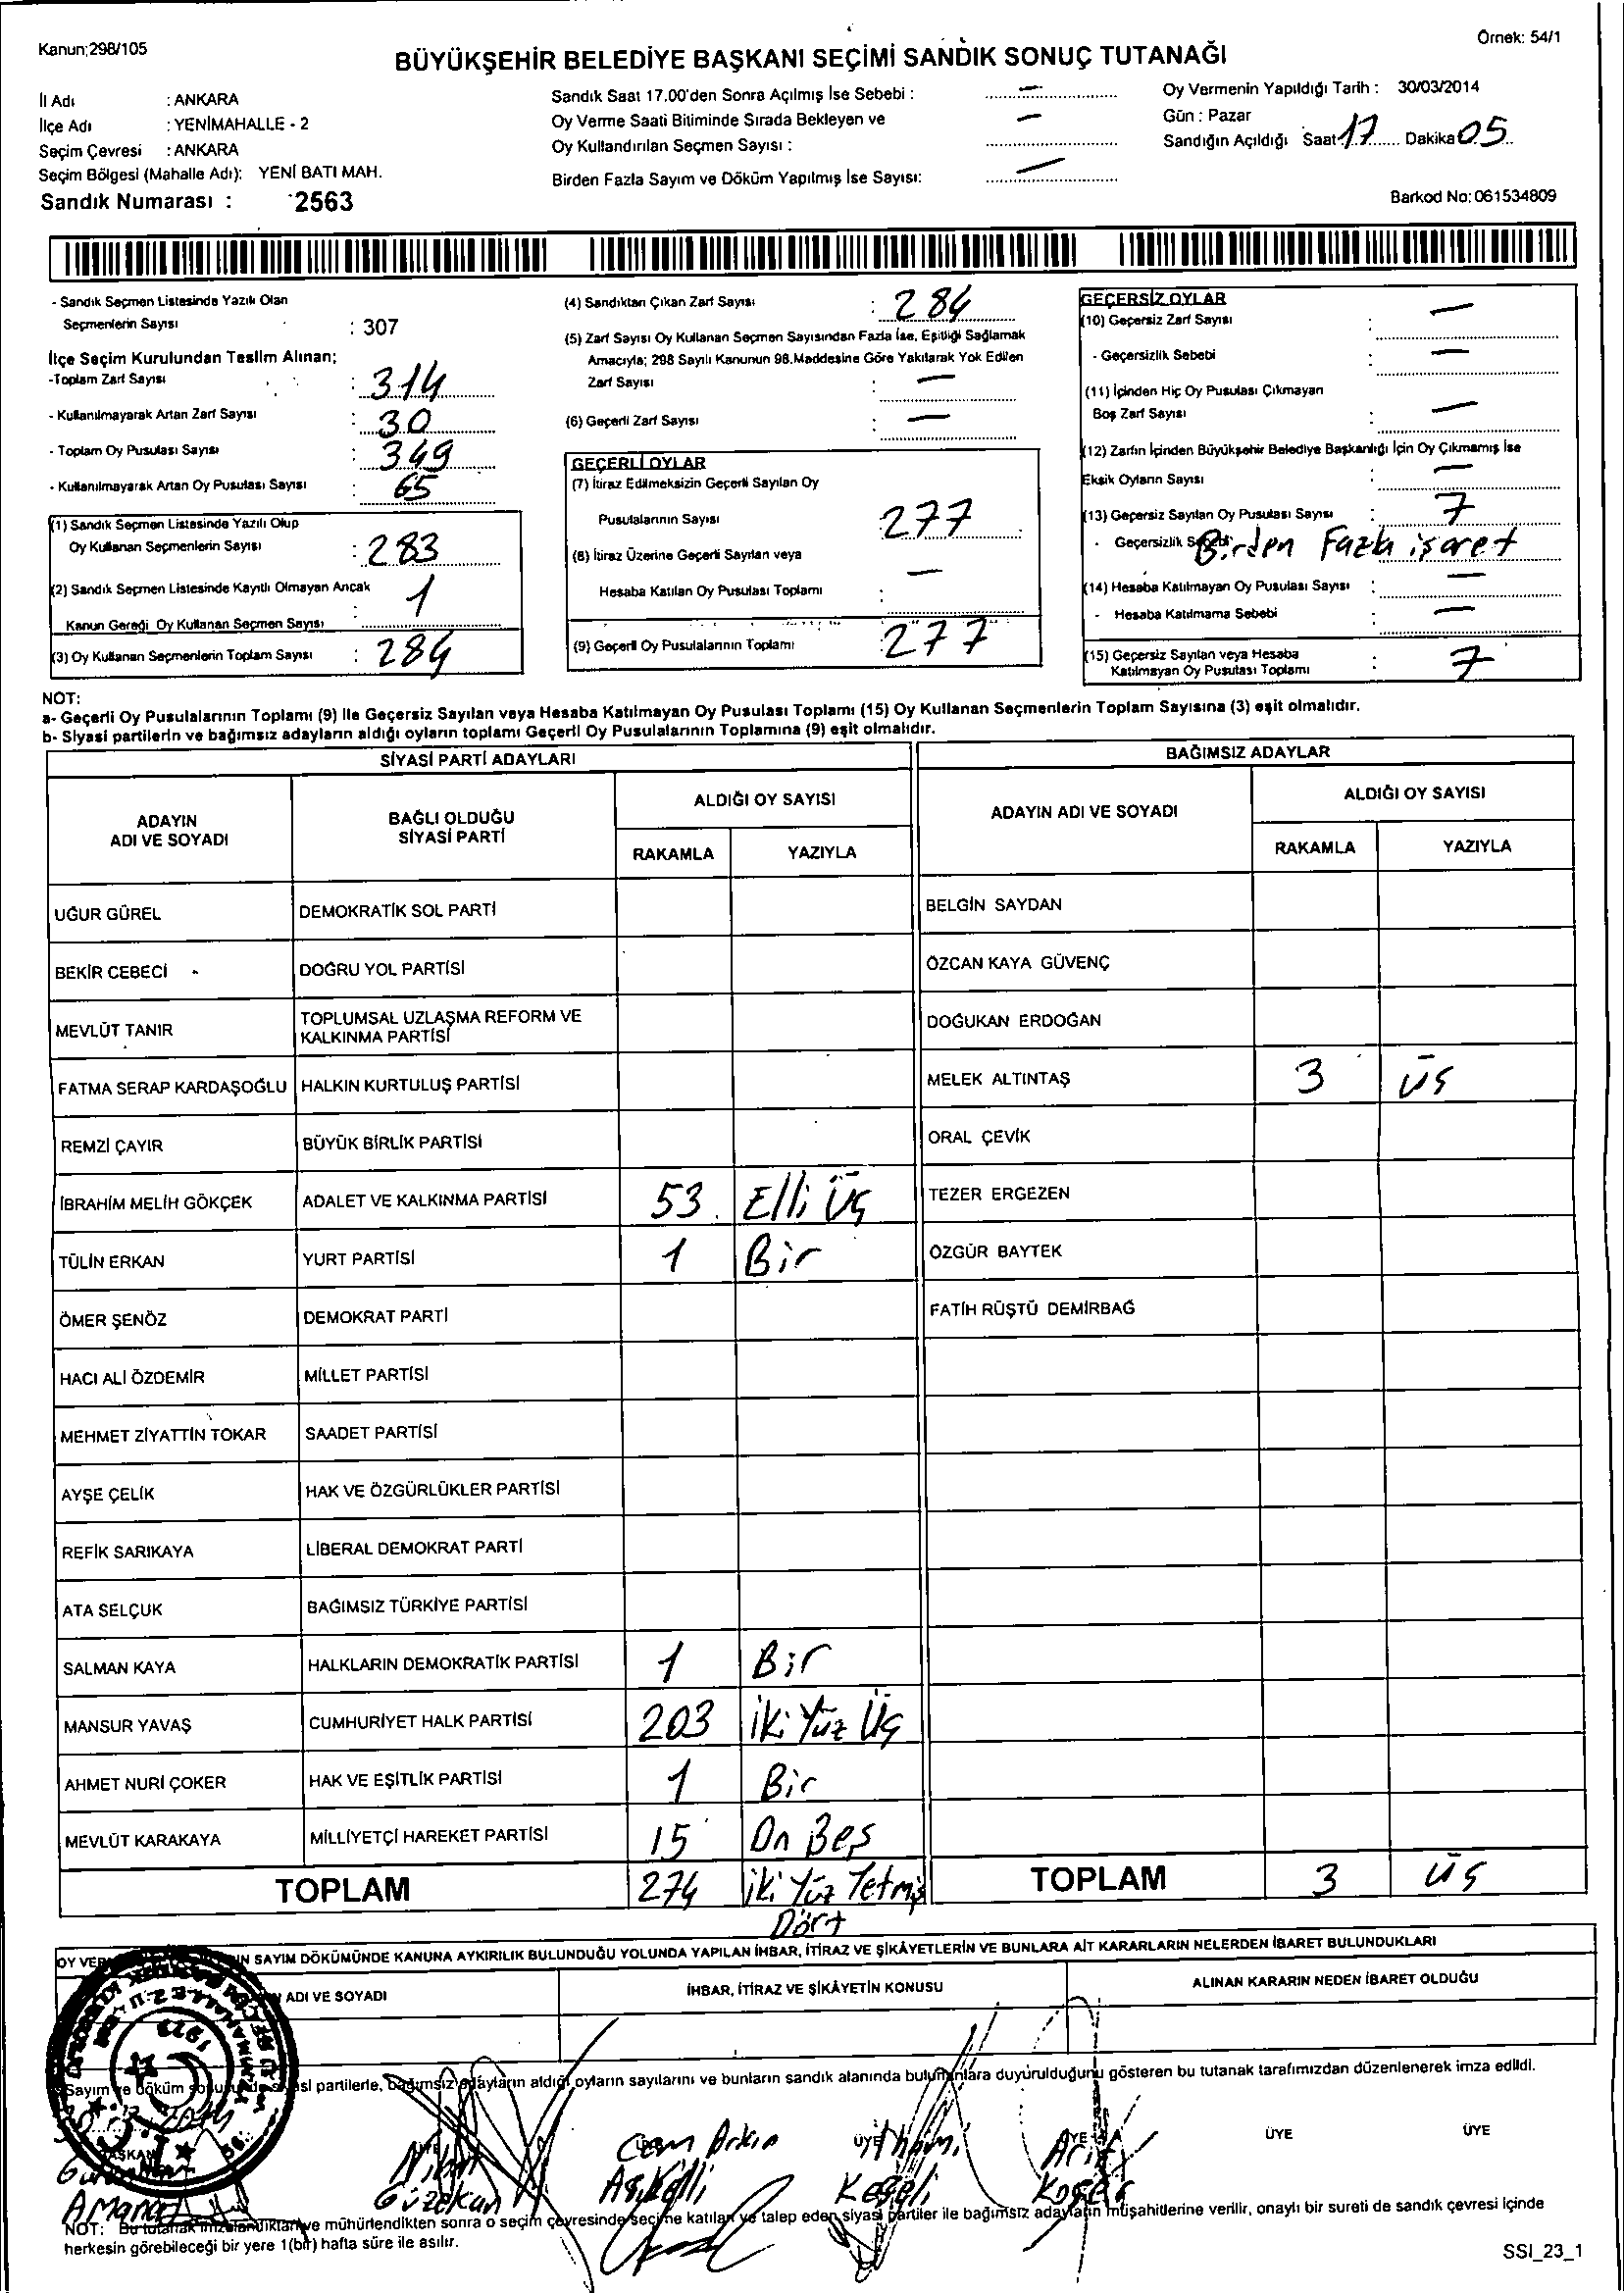 Kanun;298/105
Örnek: 54/1
BÜYÜKŞEHİR BELEDİYE BAŞKANI SEÇİMİ SANDIK SONUÇ TUTANAĞI
İl Adı : ANKARA
İlçe Adı : YENİMAHALLE - 2
Seçim Çevresi : ANKARA
Seçim Bölgesi (Mahalle Adı): YENİ BATI MAH.
Sandık Numarası : 2563
Sandık Saat 17.00'den Sonra Açılmış İse Sebebi : —
Oy Verme Saati Bitiminde Sırada Bekleyen ve —
Oy Kullandırılan Seçmen Sayısı :
Birden Fazla Sayım ve Döküm Yapılmış İse Sayısı: —
Oy Vermenin Yapıldığı Tarih : 30/03/2014
Gün : Pazar
Sandığın Açıldığı Saat 17 Dakika 05
Barkod No: 061534809
- Sandık Seçmen Listesinde Yazılı Olan
Seçmenlerin Sayısı : 307
İlçe Seçim Kurulundan Teslim Alınan;
-Toplam Zarf Sayısı : 314
- Kullanılmayarak Artan Zarf Sayısı : 30
- Toplam Oy Pusulası Sayısı : 349
- Kullanılmayarak Artan Oy Pusulası Sayısı : 65
(1) Sandık Seçmen Listesinde Yazılı Olup
Oy Kullanan Seçmenlerin Sayısı : 283
(2) Sandık Seçmen Listesinde Kayıtlı Olmayan Ancak
Kanun Gereği Oy Kullanan Seçmen Sayısı : 1
(3) Oy Kullanan Seçmenlerin Toplam Sayısı : 284
(4) Sandıktan Çıkan Zarf Sayısı : 284
(5) Zarf Sayısı Oy Kullanan Seçmen Sayısından Fazla İse, Eşitliği Sağlamak
Amacıyla; 298 Sayılı Kanunun 98.Maddesine Göre Yakılarak Yok Edilen
Zarf Sayısı : —
(6) Geçerli Zarf Sayısı : —
GEÇERLİ OYLAR
(7) İtiraz Edilmeksizin Geçerli Sayılan Oy
Pusulalarının Sayısı : 277
(8) İtiraz Üzerine Geçerli Sayılan veya
Hesaba Katılan Oy Pusulası Toplamı : —
(9) Geçerli Oy Pusulalarının Toplamı : 277
GEÇERSİZ OYLAR
(10) Geçersiz Zarf Sayısı : —
- Geçersizlik Sebebi : —
(11) İçinden Hiç Oy Pusulası Çıkmayan
Boş Zarf Sayısı : —
(12) Zarfın İçinden Büyükşehir Belediye Başkanlığı İçin Oy Çıkmamış İse
Eksik Oyların Sayısı : —
(13) Geçersiz Sayılan Oy Pusulası Sayısı : 7
- Geçersizlik Sebebi Birden Fazla işaret
(14) Hesaba Katılmayan Oy Pusulası Sayısı : —
- Hesaba Katılmama Sebebi : —
(15) Geçersiz Sayılan veya Hesaba
Katılmayan Oy Pusulası Toplamı : 7
NOT:
a- Geçerli Oy Pusulalarının Toplamı (9) İle Geçersiz Sayılan veya Hesaba Katılmayan Oy Pusulası Toplamı (15) Oy Kullanan Seçmenlerin Toplam Sayısına (3) eşit olmalıdır.
b- Siyasi partilerin ve bağımsız adayların aldığı oyların toplamı Geçerli Oy Pusulalarının Toplamına (9) eşit olmalıdır.
SİYASİ PARTİ ADAYLARI
ADAYIN ADI VE SOYADI
BAĞLI OLDUĞU SİYASİ PARTİ
ALDIĞI OY SAYISI
RAKAMLA YAZIYLA
UĞUR GÜREL DEMOKRATİK SOL PARTİ
BEKİR CEBECİ DOĞRU YOL PARTİSİ
MEVLÜT TANIR TOPLUMSAL UZLAŞMA REFORM VE
KALKINMA PARTİSİ
FATMA SERAP KARDAŞOĞLU HALKIN KURTULUŞ PARTİSİ
REMZİ ÇAYIR BÜYÜK BİRLİK PARTİSİ
İBRAHİM MELİH GÖKÇEK ADALET VE KALKINMA PARTİSİ 53 Elli Üç
TÜLİN ERKAN YURT PARTİSİ 1 Bir
ÖMER ŞENÖZ DEMOKRAT PARTİ
HACI ALİ ÖZDEMİR MİLLET PARTİSİ
MEHMET ZİYATTİN TOKAR SAADET PARTİSİ
AYŞE ÇELİK HAK VE ÖZGÜRLÜKLER PARTİSİ
REFİK SARIKAYA LİBERAL DEMOKRAT PARTİ
ATA SELÇUK BAĞIMSIZ TÜRKİYE PARTİSİ
SALMAN KAYA HALKLARIN DEMOKRATİK PARTİSİ 1 Bir
MANSUR YAVAŞ CUMHURİYET HALK PARTİSİ 203 İki Yüz Üç
AHMET NURİ ÇOKER HAK VE EŞİTLİK PARTİSİ 1 Bir
MEVLÜT KARAKAYA MİLLİYETÇİ HAREKET PARTİSİ 15 On Beş
TOPLAM 274 İki Yüz Yetmiş
Dört
BAĞIMSIZ ADAYLAR
ADAYIN ADI VE SOYADI
ALDIĞI OY SAYISI
RAKAMLA YAZIYLA
BELGİN SAYDAN
ÖZCAN KAYA GÜVENÇ
DOĞUKAN ERDOĞAN
MELEK ALTINTAŞ 3 üç
ORAL ÇEVİK
TEZER ERGEZEN
ÖZGÜR BAYTEK
FATİH RÜŞTÜ DEMİRBAĞ
TOPLAM 3 üç
OY VER SAYIM DÖKÜMÜNDE KANUNA AYKIRILIK BULUNDUĞU YOLUNDA YAPILAN İHBAR, İTİRAZ VE ŞİKÂYETLERİN VE BUNLARA AİT KARARLARIN NELERDEN İBARET BULUNDUKLARI
ADI VE SOYADI
İHBAR, İTİRAZ VE ŞİKÂYETİN KONUSU
ALINAN KARARIN NEDEN İBARET OLDUĞU
Sayım ve döküm partilerle, bağımsız adayların aldığı oyların sayılarını ve bunların sandık alanında bulunanlara duyurulduğunu gösteren bu tutanak tarafımızdan düzenlenerek imza edildi.
BAŞKAN ÜYE ÜYE ÜYE ÜYE ÜYE
Nihat Cem Arkın İlhami Arif
Güzelkan Keşeli
NOT: Bu tutanak imzalandıktan ve mühürlendikten sonra o seçim çevresinde seçime katılan ve talep eden siyasi partiler ile bağımsız adayların müşahitlerine verilir, onaylı bir sureti de sandık çevresi içinde
herkesin görebileceği bir yere 1(bir) hafta süre ile asılır.
SSI_23_1